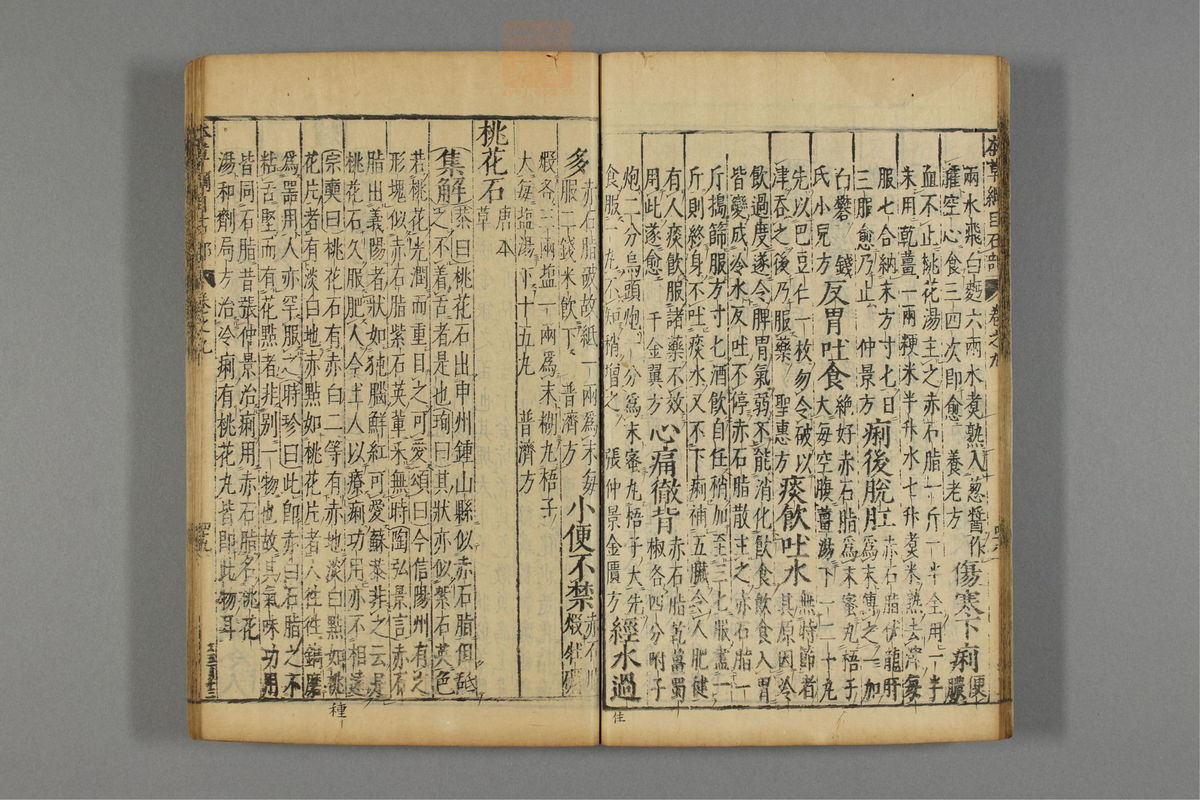 本草綱目石部 卷之九
兩水飛白麪六兩水煮熟入葱醬作
臛空心食三四次即愈 養老方 傷寒下痢 便膿
血不止桃花湯主之赤石脂一斤一半全用一半
末用乾薑一兩粳米半升水七升煮米熟去滓每
服七合納末方寸七日
三服愈乃止 仲景方 痢後脫肛 赤石脂伏龍肝
爲末傅之一加
白礬 錢
氏小兒方 反胃吐食 絶好赤石脂爲末蜜丸梧子
大每空腹薑湯下一二十丸
先以巴豆仁一枚勿令破以
津吞之後乃服藥 聖惠方 痰飲吐水 無時節者
其原因冷
飲過度遂令脾胃氣弱不能消化飲食飲食入胃
皆變成冷水反吐不停赤石脂散主之赤石脂一
斤搗篩服方寸七酒飲自任稍加至三七服盡一
斤則終身不吐痰水又不下痢補五臟令人肥健
有人痰飲服諸藥不效
用此遂愈 千金翼方 心痛徹背 赤石脂乾薑蜀
椒各四分附子
炮二分烏頭炮一分爲末蜜丸梧子大先
食服一丸不知稍增之 張仲景金匱方 經水過
多 赤石脂破故紙一兩爲末每
服二錢米飲下 普濟方 小便不禁
煅各三兩鹽一兩爲末糊丸梧子
大每鹽湯下十五丸 普濟方
桃花石 唐本
草
集解 恭曰桃花石出申州鍾山縣似赤石脂但䑛
之不着舌者是也珣曰其狀亦似紫石英色
若桃花光潤而重目之可愛頌曰今信陽州有之
形塊似赤石脂紫石英輩采無時陶弘景言赤石
脂出義陽者狀如㹠腦鮮紅可愛蘇恭非之云是
桃花石久服肥人今土人以療痢功用亦不相遠
宗奭曰桃花石有赤白二等有赤地淡白點如桃
花片者有淡白地赤點如桃花片者人往往鐫磨
爲器用人亦罕服之時珍曰此即赤白石脂之不
粘舌堅而有花點者非别一物也故其氣味功用
皆同石脂昔張仲景治痢用赤石脂名桃花
湯和劑局方治冷痢有桃花丸皆即此物耳
種